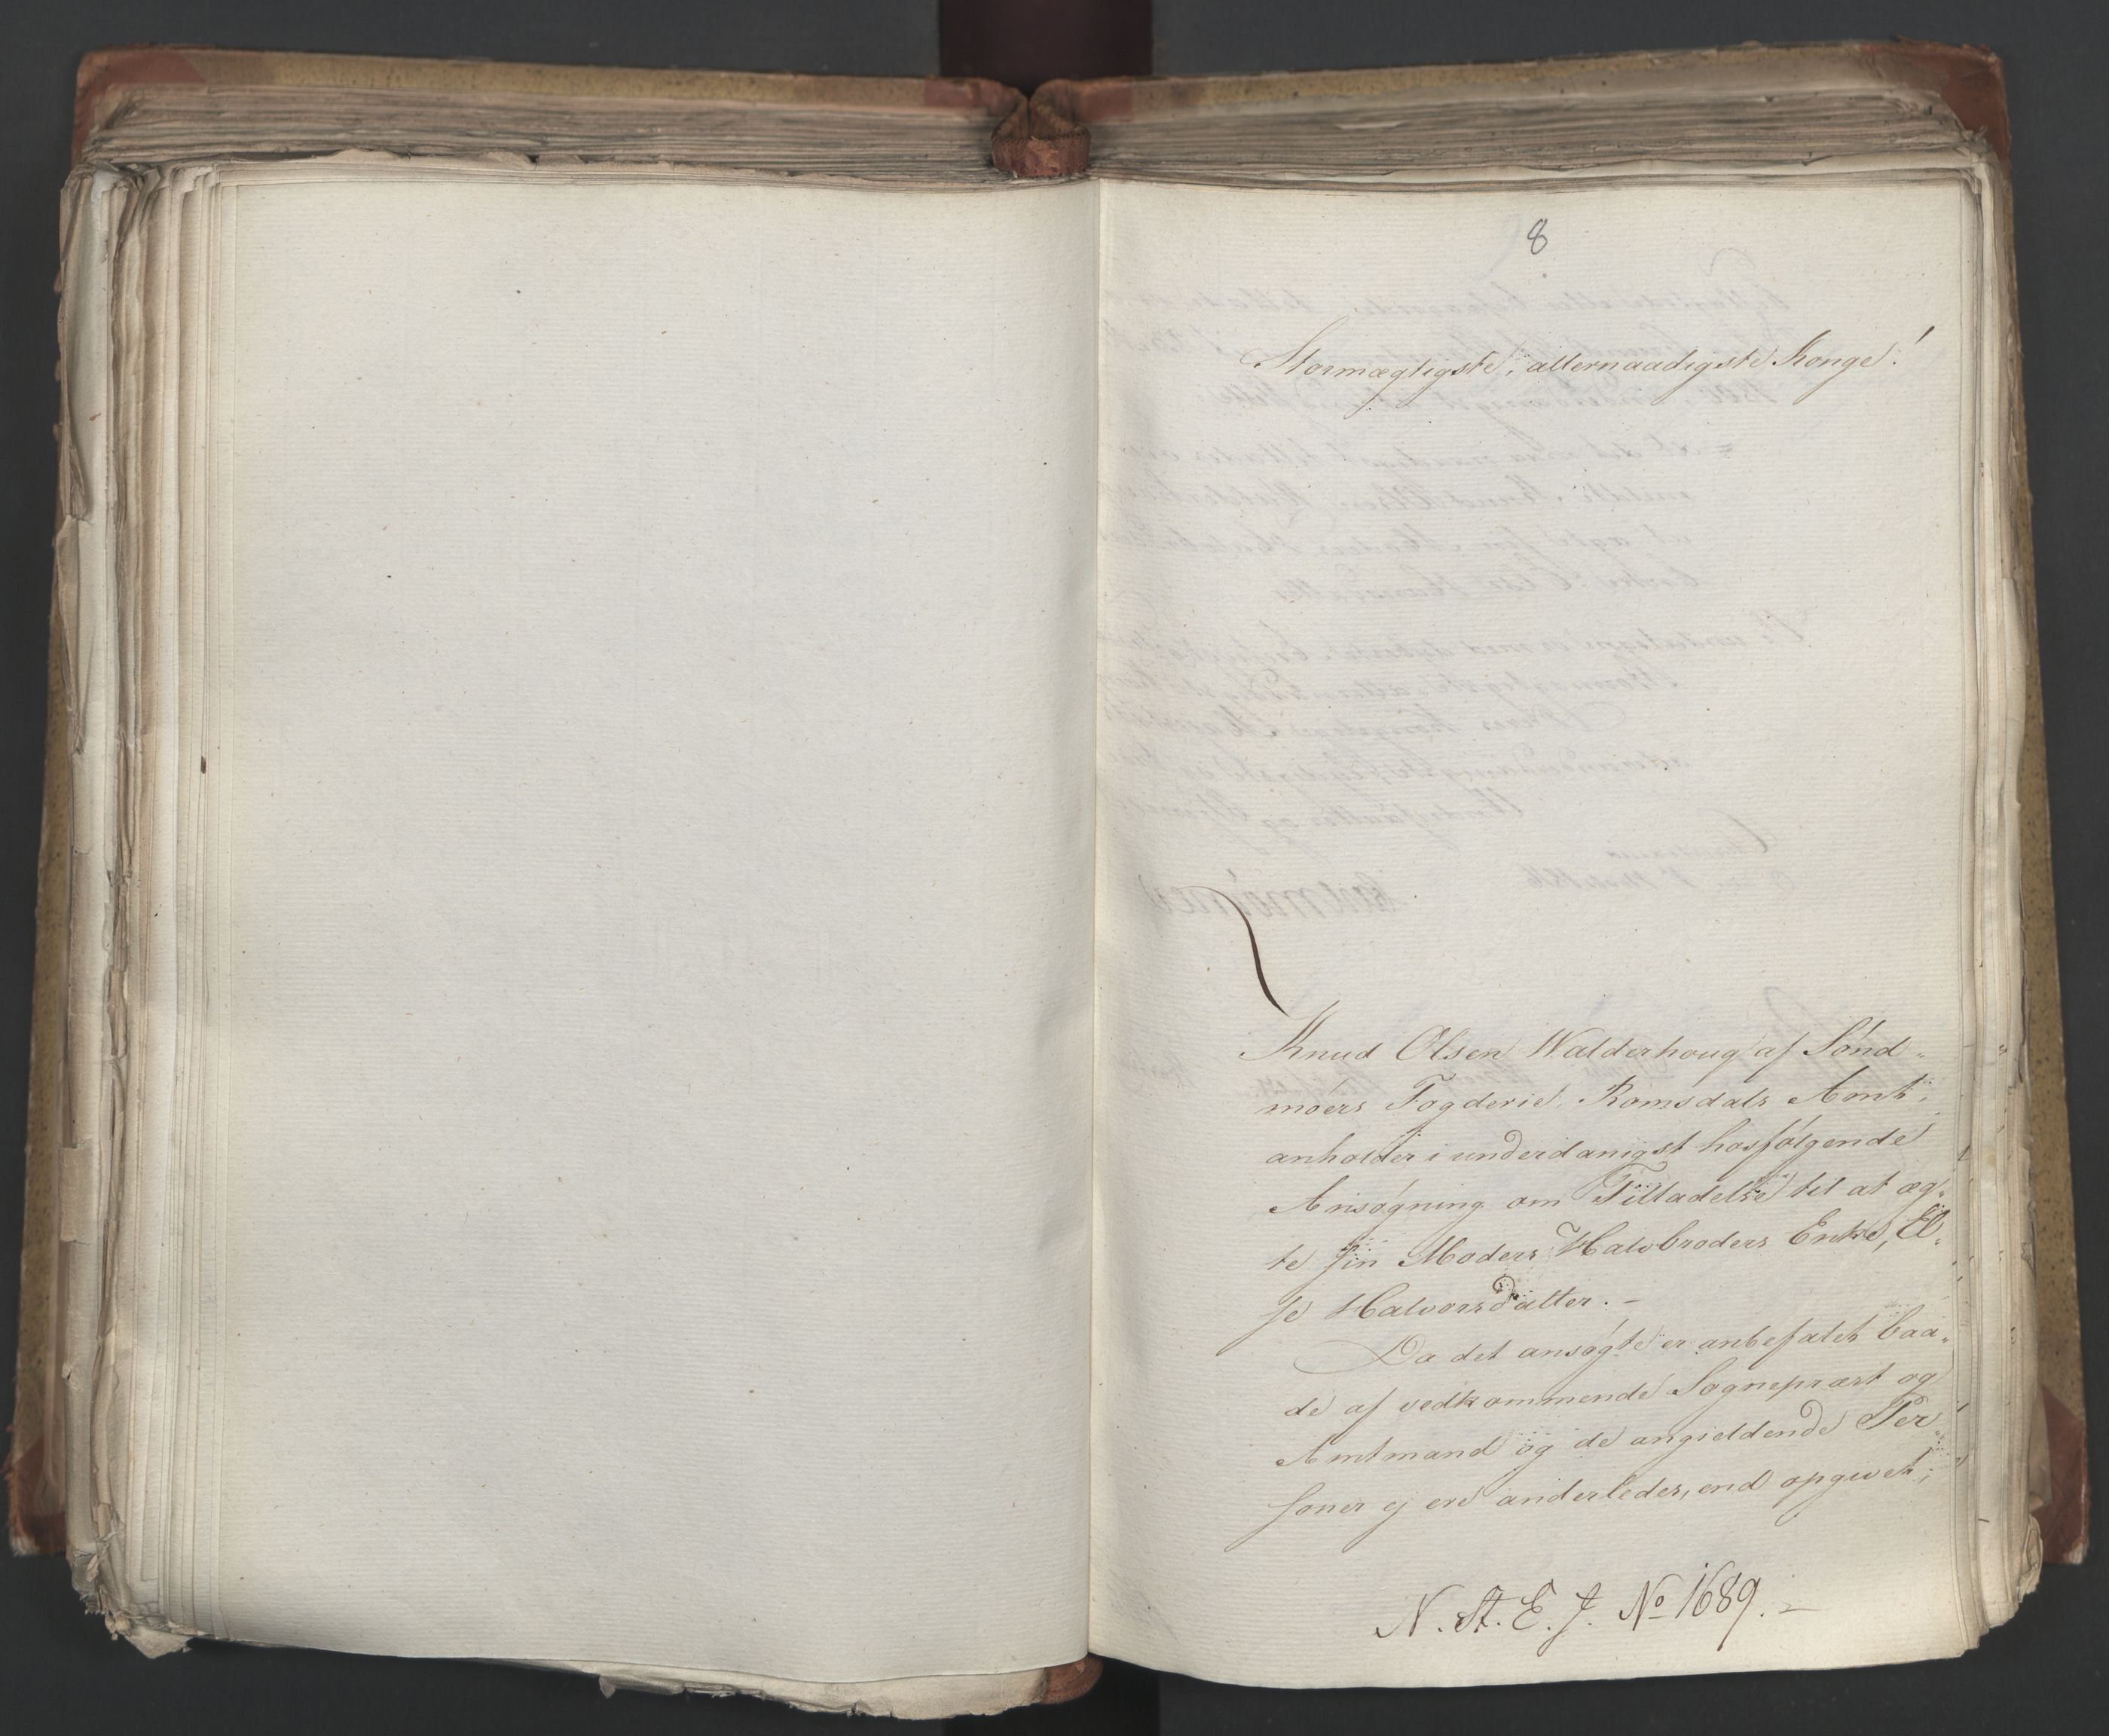 8
Stormægtigste, allernaadigste Konge!
Knud Olsen Walderhoug af Sønd„
møers Fogderie, Romsdals Amt,
anholder i underdanigst hosfølgende
Ansøgning om Tilladelse til at æg„
te sin Moders Halvbroders Enke, El„
se Halvorsdatter. –
Da det ansøgte er anbefalet baa„
de af vedkommende Sognepræst og
Amtmand og de angieldende Per„
soner ej ere anderledes, end opgivet,
N. St. E. J. No 1689. –